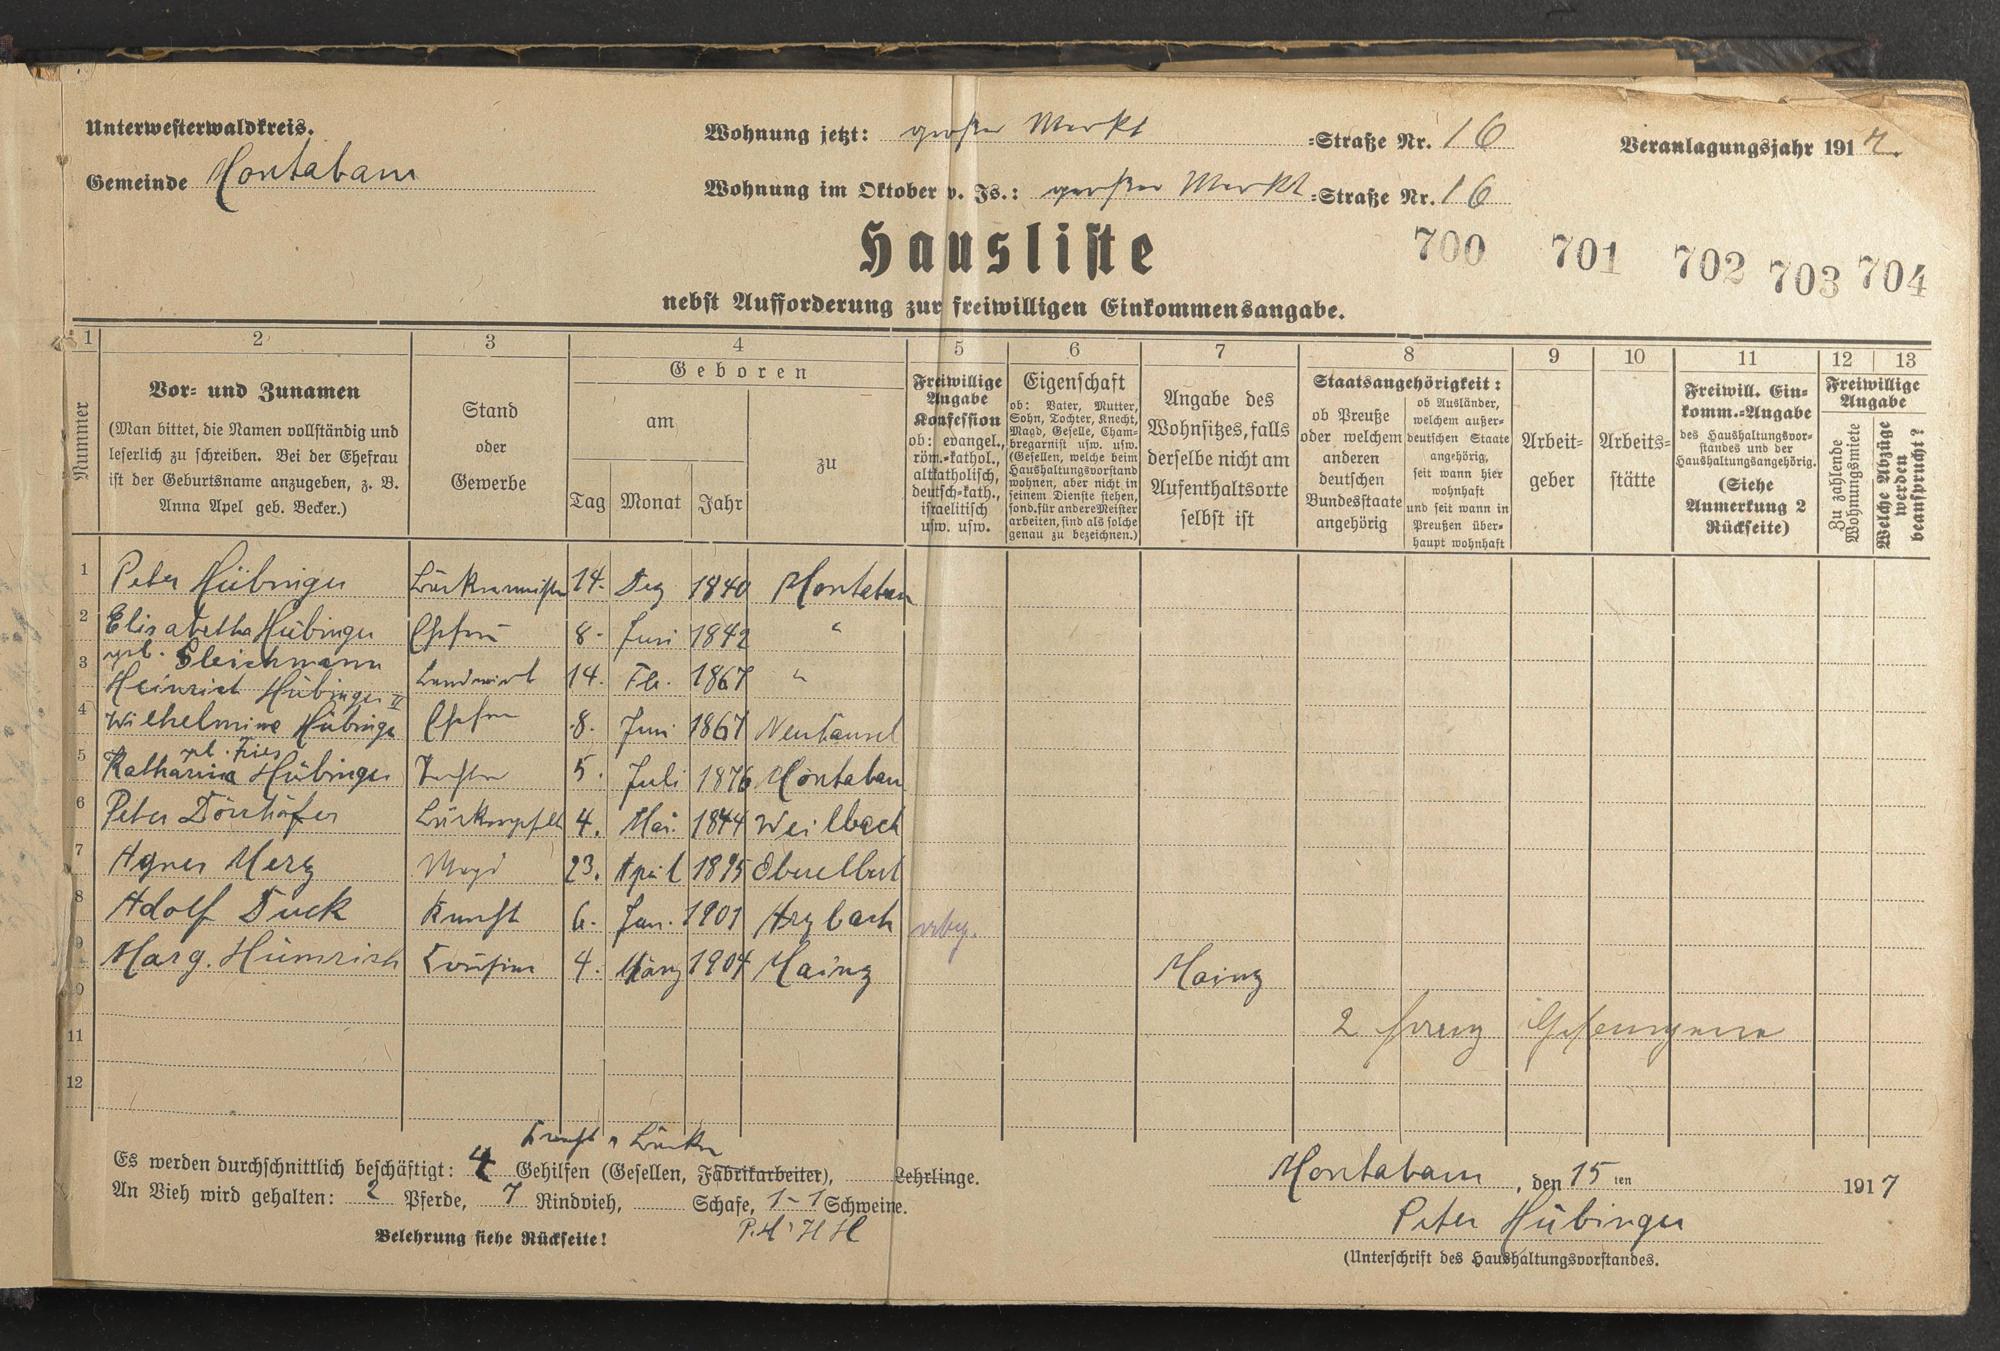 Unterwesterwaldkreis.
Gemeinde Montabaur
Wohnung jetzt: großer Markt =Straße Nr. 16
Wohnung im Oktober v. Js.: großer Markt =Straße Nr. 16
Veranlagungsjahr 191
Hausliste
700 701 702 703 704
nebst Aufforderung zur freiwilligen Einkommensangabe.
1 2 3 4 5 6 7 8 9 10 11 12 13
Nummer
Vor- und Zunamen
(Man bittet, die Namen vollständig und
leserlich zu schreiben. Bei der Ehefrau
ist der Geburtsname anzugeben, z. B.
Anna Apel geb. Becker.)
Stand
oder
Gewerbe
Geboren
am
Tag Monat Jahr
zu
Freiwillige
Angabe
Konfession
ob: evangel.,
röm.-kathol.,
altkatholisch,
deutsch-kath.,
israelitisch
usw. usw.
Eigenschaft
ob: Vater, Mutter,
Sohn, Tochter, Knecht,
Magd, Geselle, Cham-
bregarnist usw. usw.
(Gesellen, welche beim
Haushaltungsvorstand
wohnen, aber nicht in
seinem Dienste stehen,
sond. für andere Meister
arbeiten, sind als solche
genau zu bezeichnen.)
Angabe des
Wohnsitzes, falls
derselbe nicht am
Aufenthaltsorte
selbst ist
Staatsangehörigkeit:
ob Preuße
oder welchem
anderen
deutschen
Bundesstaate
angehörig
ob Ausländer,
welchem außer-
deutschen Staate
angehörig,
seit wann hier
wohnhaft
und seit wann in
Preußen über-
haupt wohnhaft
Arbeit-
geber
Arbeits-
stätte
Freiwill. Ein-
komm.-Angabe
des Haushaltungsvor-
standes und der
Haushaltungsangehörig.
(Siehe
Anmerkung 2
Rückseite)
Freiwillige
Angabe
Zu zahlende
Wohnungsmiete
Welche Abzüge
werden
beansprucht?
1 Peter Hübinger Bäckermeister 14. Dez 1840 Montabaur
2 Elisabetha Hübinger Ehefrau 8. Juni 1842 "
geb. Gleichmann
3 Heinrich Hübinger II Landwirt 14. Feb. 1867 "
4 Wilhelmine Hübinger Ehefrau 8. Juni 1867 Neuhäusel
geb. Fries
5 Katharina Hübinger Tochter 5. Juli 1876 Montabaur
6 Peter Dörrhöfer 4. Mai. 1844 Weilbach
7 Agnes Merz Magd 23. April 1895 Oberelbert
8 Adolf Duck Knecht 6. Jan. 1901 Arzbach
9 Marg. Hümrich Cousine 4. März 1904 Mainz Mainz
10
11 2 franz Gefangene
12
Knecht u Bäcker
Es werden durchschnittlich beschäftigt: 4 Gehilfen (Gesellen, Fabrikarbeiter), Lehrlinge.
An Vieh wird gehalten: 2 Pferde, 7 Rindvieh, Schafe, 1-1 Schweine.
P. H. H H
Belehrung siehe Rückseite!
Montabaur, den 15 ten 1917
Peter Hübinger
(Unterschrift des Haushaltungsvorstandes.